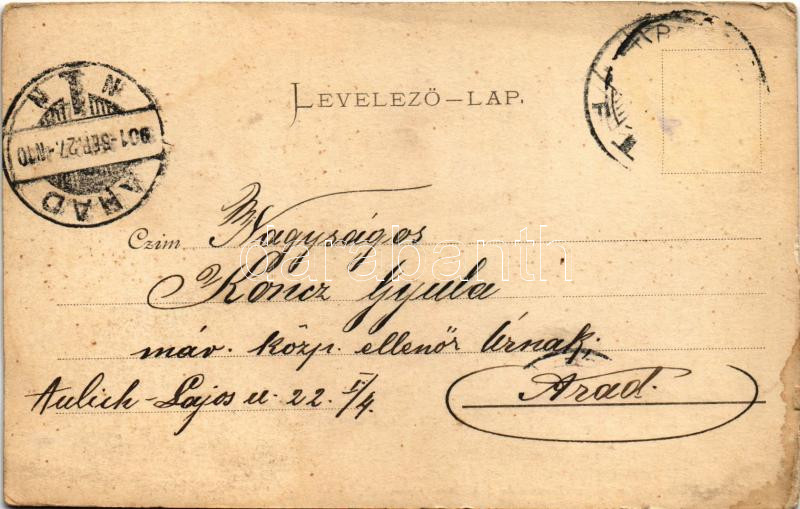 LEVELEZŐ–LAP.
ARAD
901 SEP. 27.
Czim Nagyságos
Koncz Gyula
máv. közp. ellenőr Úrnak.
Aulich-Lajos u. 22. I/4.
Arad.
darabanth